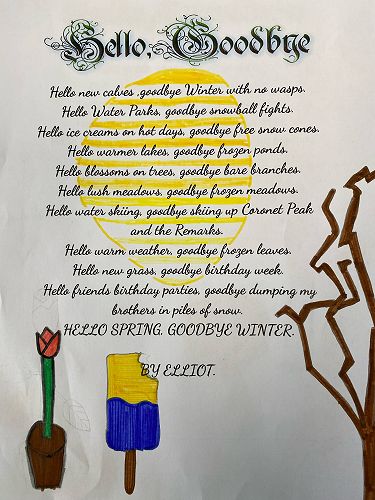 Hello, Goodbye
Hello new calves ,goodbye Winter with no wasps.
Hello Water Parks, goodbye snowball fights.
Hello ice creams on hot days, goodbye free snow cones.
Hello warmer lakes, goodbye frozen ponds.
Hello blossoms on trees, goodbye bare branches.
Hello lush meadows, goodbye frozen meadows.
Hello water skiing, goodbye skiing up Coronet Peak
and the Remarks.
Hello warm weather, goodbye frozen leaves.
Hello new grass, goodbye birthday week.
Hello friends birthday parties, goodbye dumping my
brothers in piles of snow.
HELLO SPRING, GOODBYE WINTER.
BY ELLIOT.